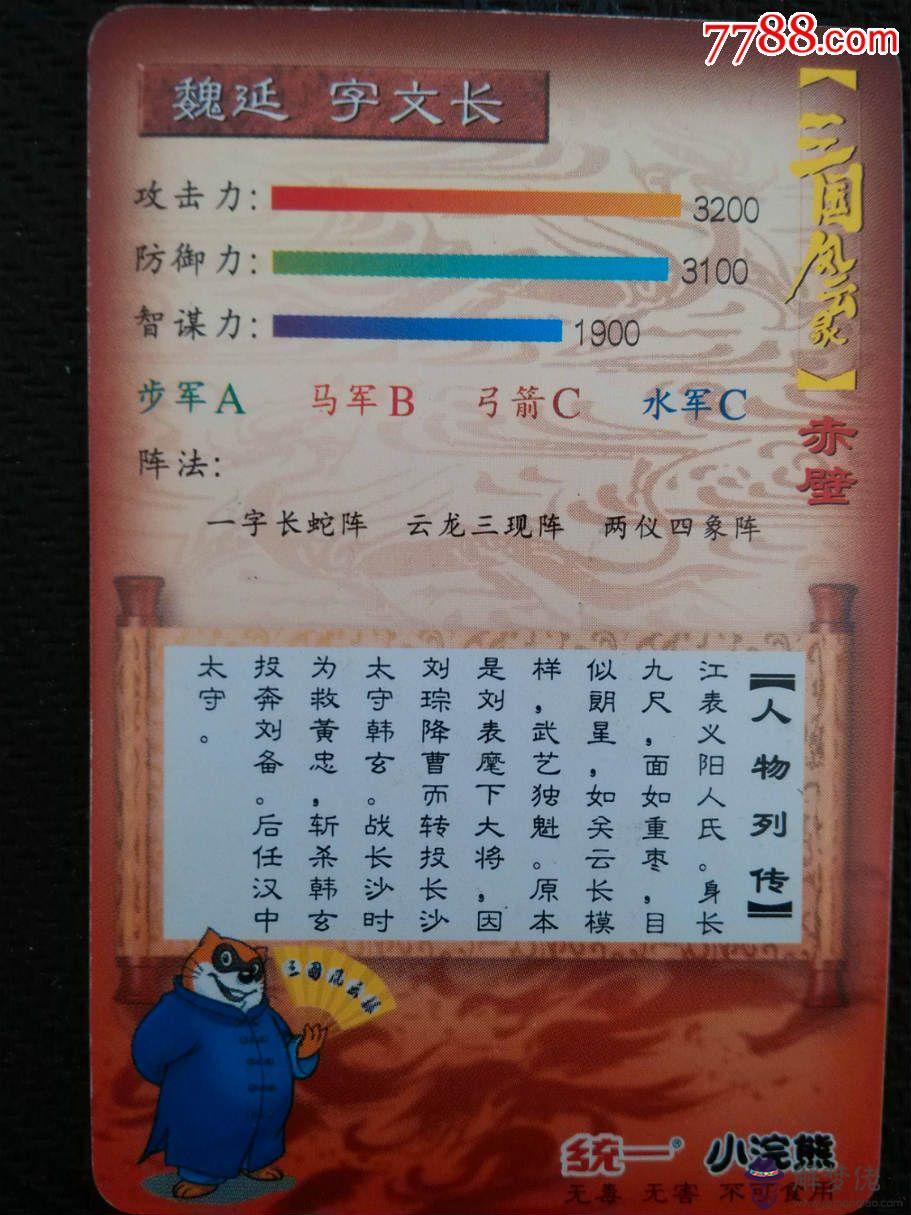 7788.com
魏延 字文长
【三国风云录】
赤壁
攻击力: 3200
防御力: 3100
智谋力: 1900
步军A 马军B 弓箭C 水军C
阵法:
一字长蛇阵 云龙三现阵 两仪四象阵
【人物列传】
江表义阳人氏。身长
九尺，面如重枣，目
似朗星，如关云长模
样，武艺独魁。原本
是刘表麾下大将，因
刘琮降曹而转投长沙
太守韩玄。战长沙时
为救黄忠，斩杀韩玄
投奔刘备。后任汉中
太守。
三国风云录
统一® 小浣熊
无毒 无害 不可食用
解梦佬